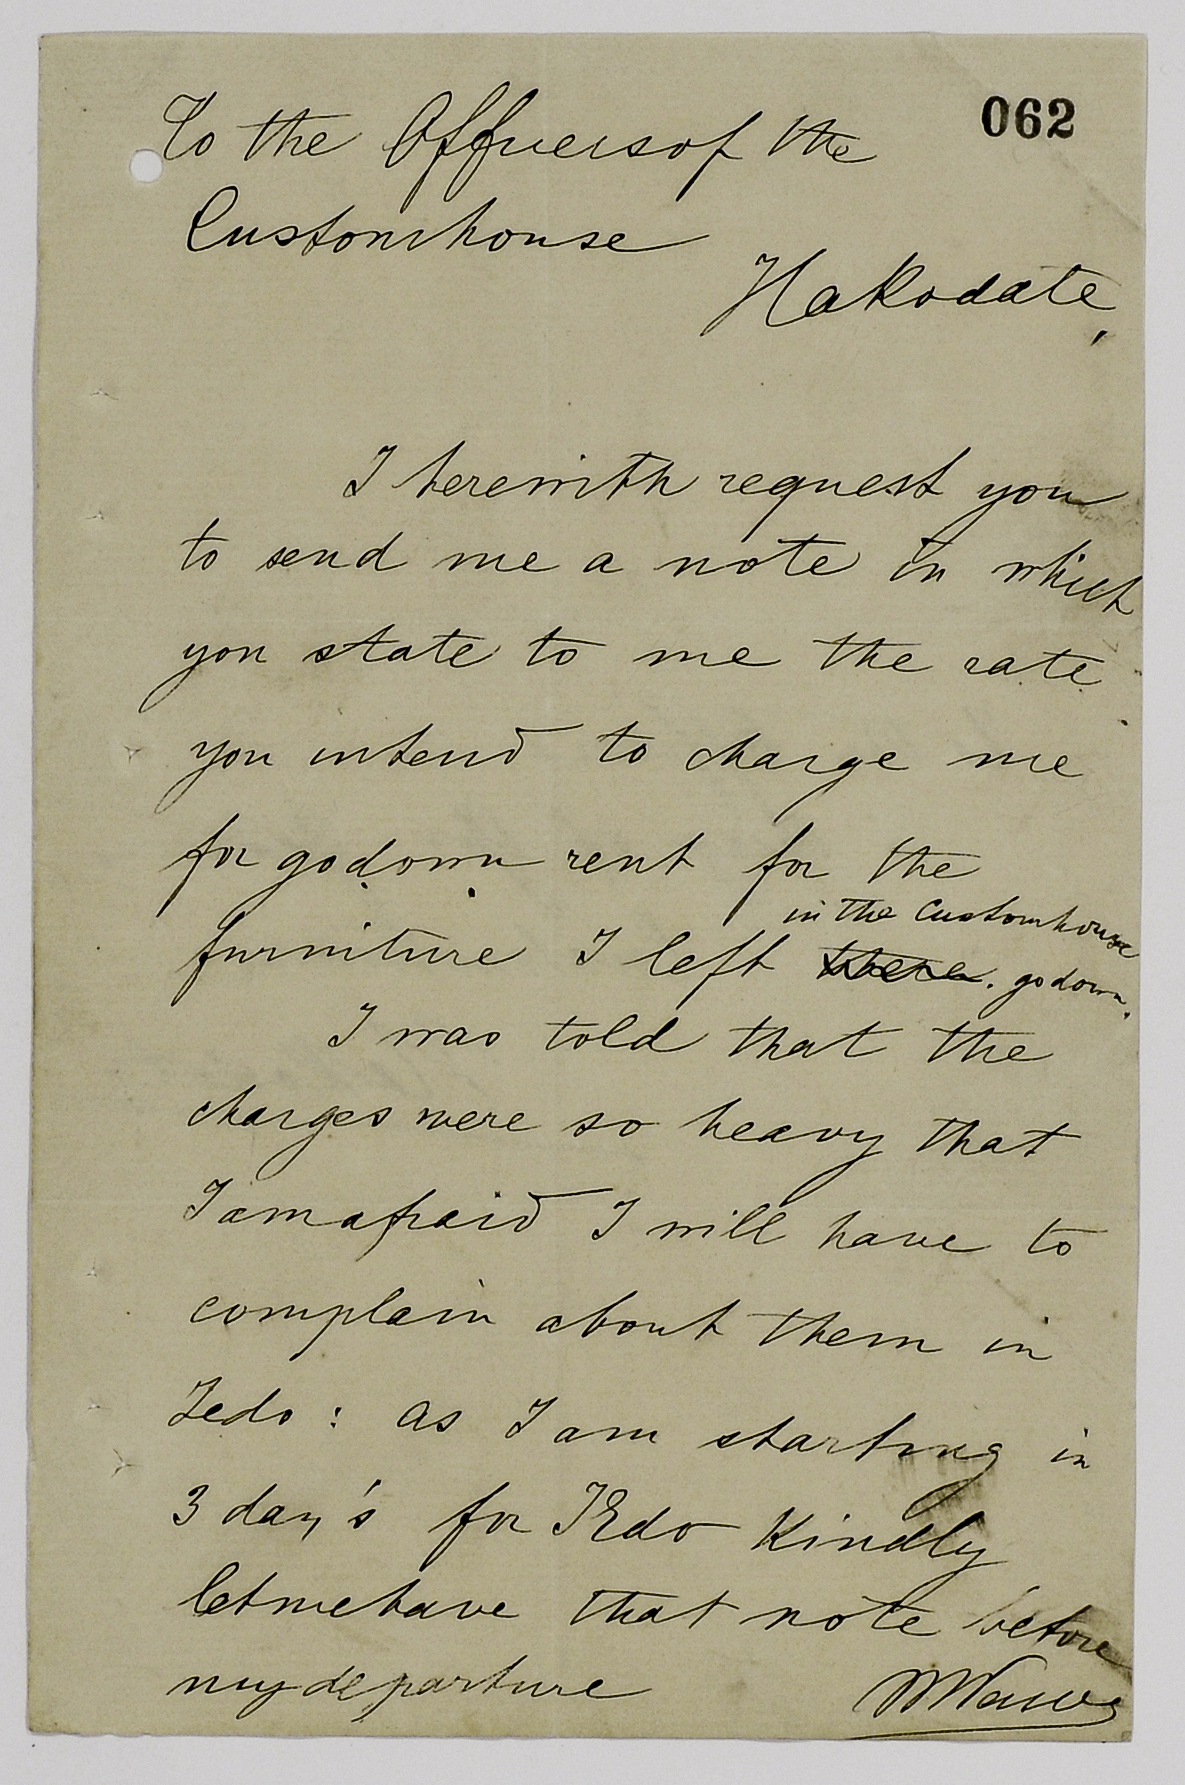 062
To the Officers of the
Customhouse
Hakodate,
I herewith request you
to send me a note in which
you state to me the rate
you intend to charge me
for godown rent for the
in the Customhouse
furniture I left there. godown.
I was told that the
charges were so heavy that
I am afraid I will have to
complain about them in
Jedo : as I am starting in
3 day's for IEdo Kindly
let me have that note before
my departure